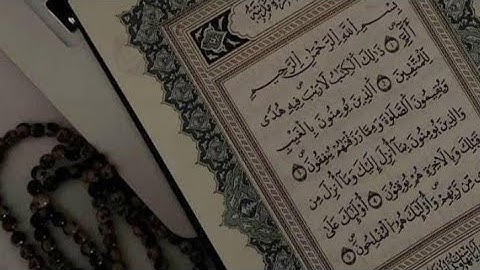 بِسْمِ ٱللَّهِ ٱلرَّحْمَٰنِ ٱلرَّحِيمِ
الٓمٓ ١ ذَٰلِكَ ٱلْكِتَٰبُ لَا رَيْبَ فِيهِ هُدًى
لِّلْمُتَّقِينَ ٢ ٱلَّذِينَ يُؤْمِنُونَ بِٱلْغَيْبِ
وَيُقِيمُونَ ٱلصَّلَوٰةَ وَمِمَّا رَزَقْنَٰهُمْ يُنفِقُونَ ٣
وَٱلَّذِينَ يُؤْمِنُونَ بِمَآ أُنزِلَ إِلَيْكَ وَمَآ أُنزِلَ مِن
قَبْلِكَ وَبِٱلْءَاخِرَةِ هُمْ يُوقِنُونَ ٤ أُو۟لَٰٓئِكَ عَلَىٰ
مِّن رَّبِّهِمْ وَأُو۟لَٰٓئِكَ هُمُ ٱلْمُفْلِحُونَ ٥